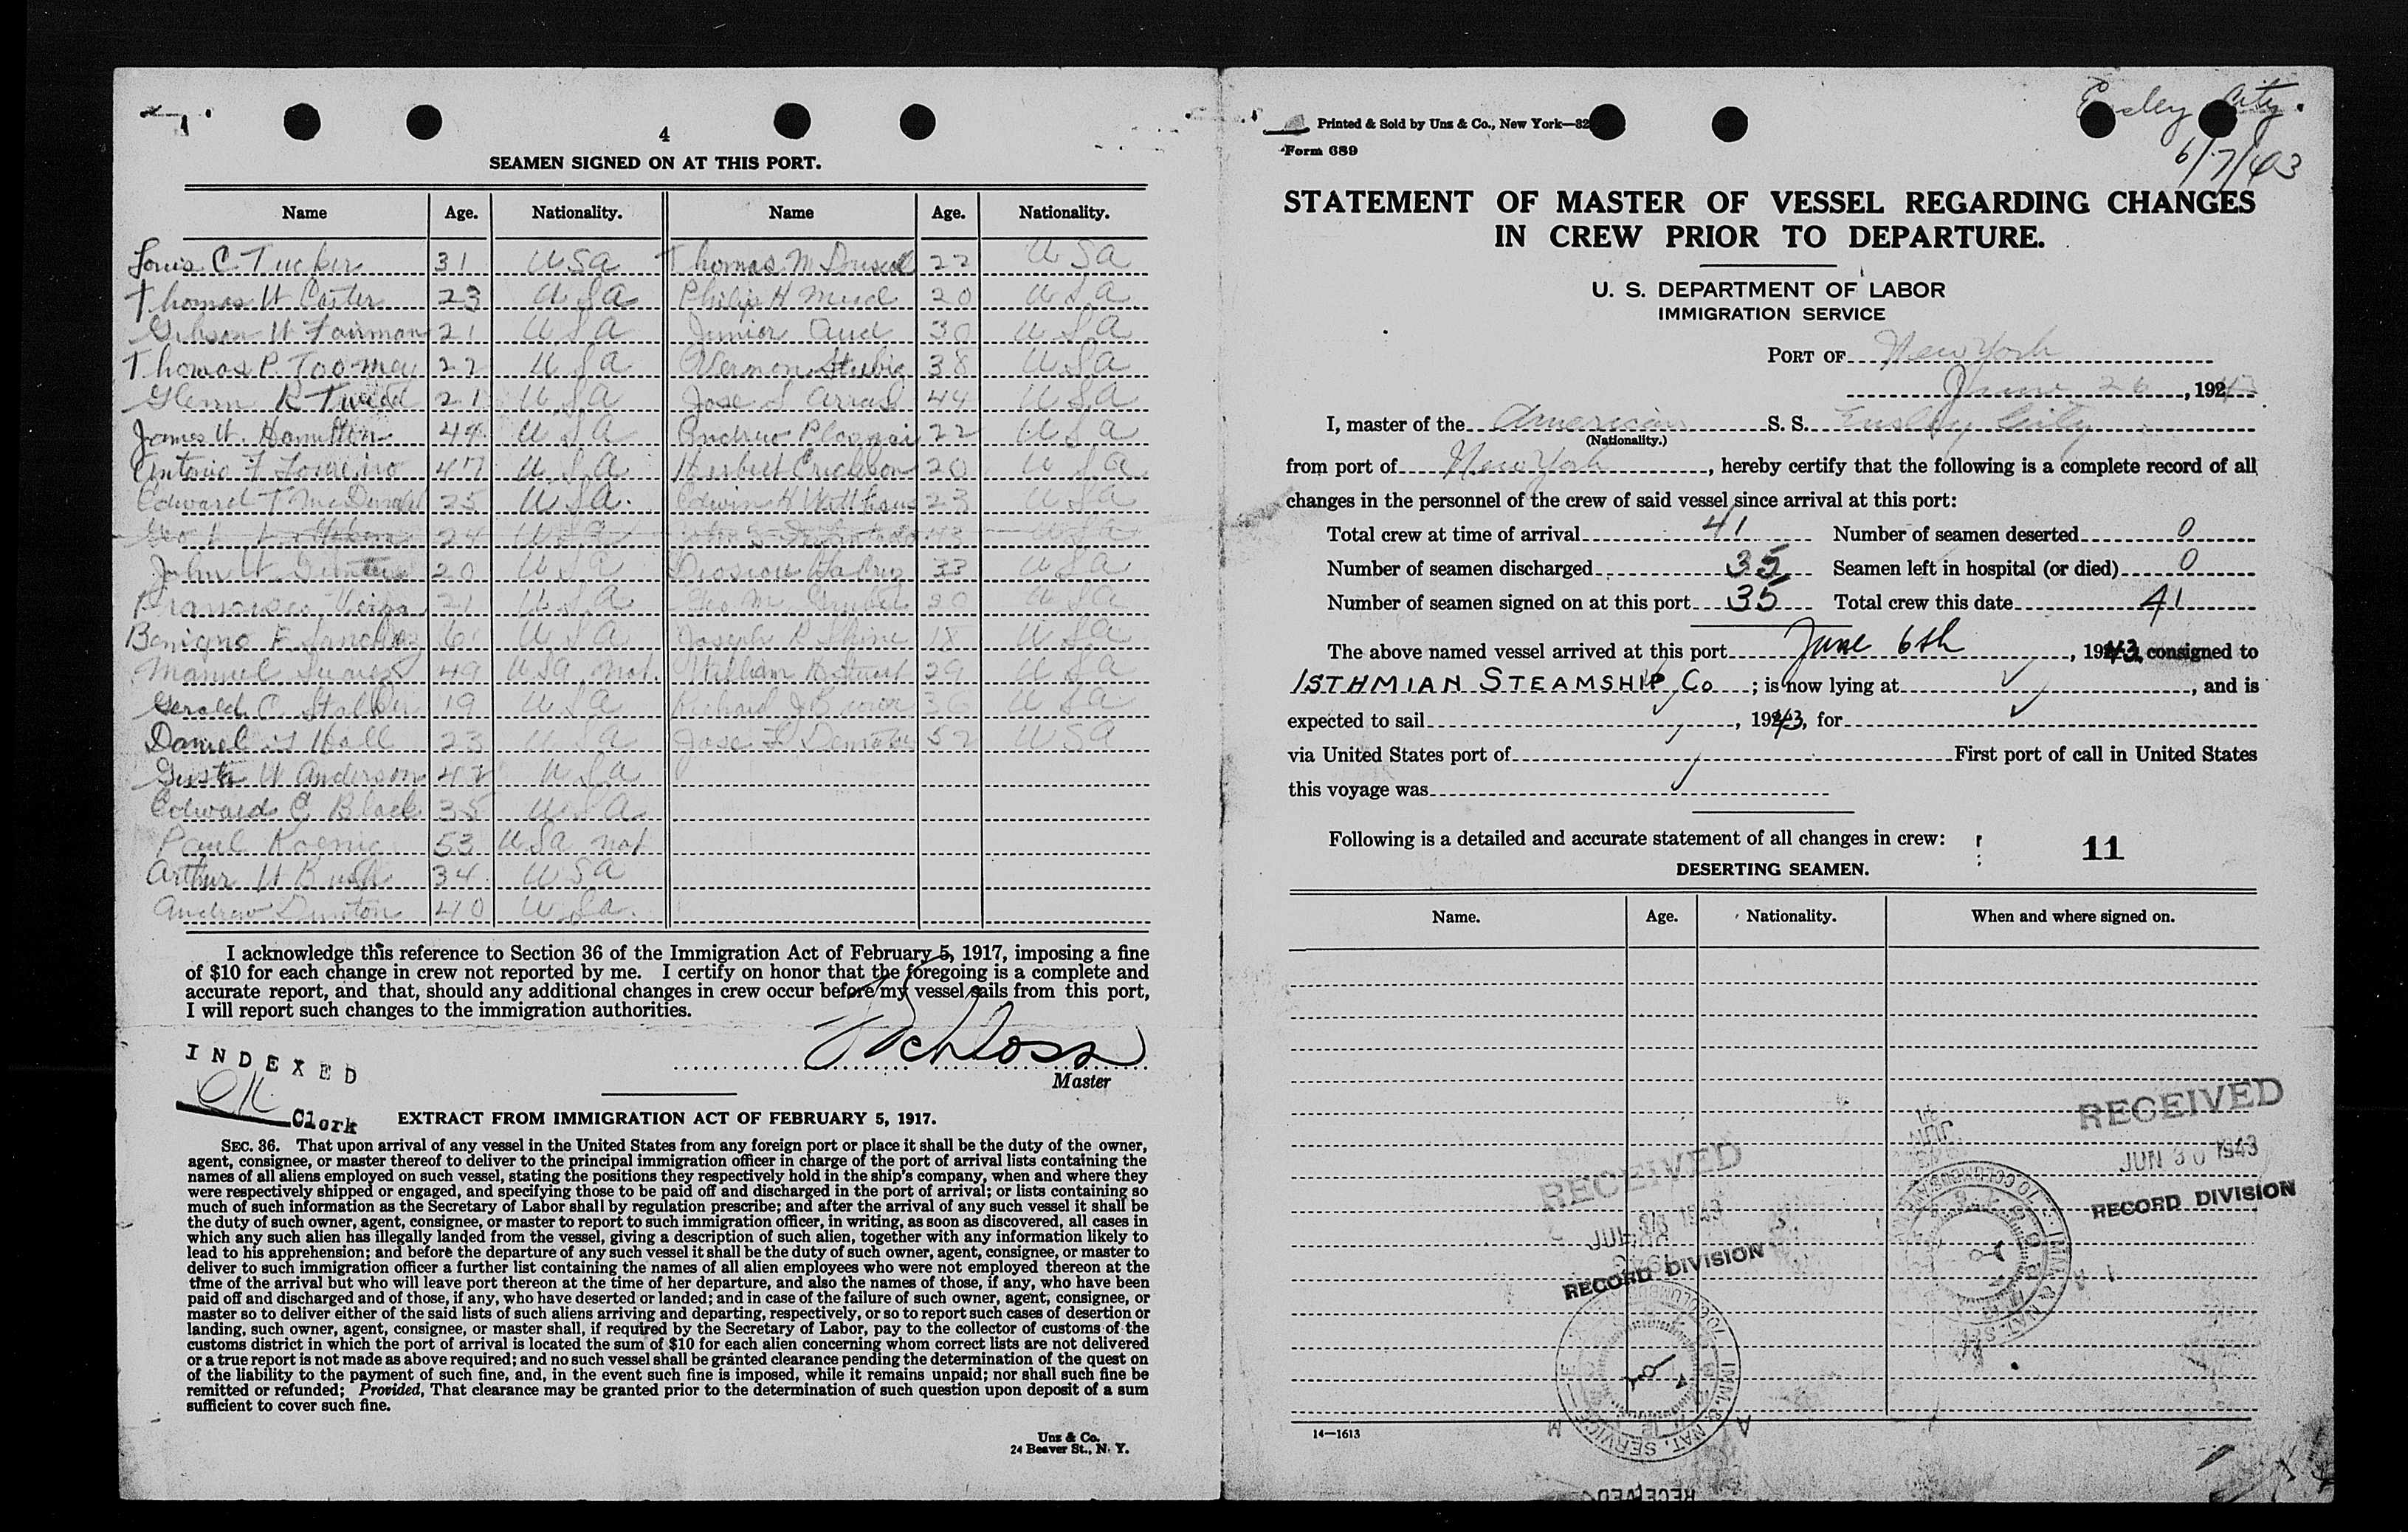 4
SEAMEN SIGNED ON AT THIS PORT.
Name Age. Nationality. Name Age. Nationality.
Louis C Tucker 31 USA Thomas M 22 USA
Thomas W Carter 23 USA Philip H Mudd 20 USA
Gibson W Fairman 21 USA Junior Aud 30 USA
Thomas P Toomey 22 USA Vernon 38 USA
Glenn R 21 USA Jose S 44 USA
James W. Hamilton 44 USA Andrew 22 USA
Antonio F 47 USA Herbert Erickson 20 USA
Edward T McDonald 25 USA. Edwin H 23 USA
24 USA 43 USA
John W. 20 USA 33 USA
Francisco 21 USA Geo M. USA
Benigno F Sanchez USA Joseph R 18 USA
Manuel Suarez 49 USA nat. William 29 USA
Gerald C 19 USA Richard J 36 USA
Daniel Hall 23 USA Jose 52 USA
W Anderson 42 USA
Edward C Black 35 USA
Paul Koenig 53 USA nat
Arthur H Bush 34 USA
Andrew 40 USA.
I acknowledge this reference to Section 36 of the Immigration Act of February 5, 1917, imposing a fine
of $10 for each change in crew not reported by me. I certify on honor that the foregoing is a complete and
accurate report, and that, should any additional changes in crew occur before my vessel sails from this port,
I will report such changes to the immigration authorities.
Schloss
Master
INDEXED
OK
Clerk
EXTRACT FROM IMMIGRATION ACT OF FEBRUARY 5, 1917.
SEC. 36. That upon arrival of any vessel in the United States from any foreign port or place it shall be the duty of the owner,
agent, consignee, or master thereof to deliver to the principal immigration officer in charge of the port of arrival lists containing the
names of all aliens employed on such vessel, stating the positions they respectively hold in the ship's company, when and where they
were respectively shipped or engaged, and specifying those to be paid off and discharged in the port of arrival; or lists containing so
much of such information as the Secretary of Labor shall by regulation prescribe; and after the arrival of any such vessel it shall be
the duty of such owner, agent, consignee, or master to report to such immigration officer, in writing, as soon as discovered, all cases in
which any such alien has illegally landed from the vessel, giving a description of such alien, together with any information likely to
lead to his apprehension; and before the departure of any such vessel it shall be the duty of such owner, agent, consignee, or master to
deliver to such immigration officer a further list containing the names of all alien employees who were not employed thereon at the
time of the arrival but who will leave port thereon at the time of her departure, and also the names of those, if any, who have been
paid off and discharged and of those, if any, who have deserted or landed; and in case of the failure of such owner, agent, consignee, or
master so to deliver either of the said lists of such aliens arriving and departing, respectively, or so to report such cases of desertion or
landing, such owner, agent, consignee, or master shall, if required by the Secretary of Labor, pay to the collector of customs of the
customs district in which the port of arrival is located the sum of $10 for each alien concerning whom correct lists are not delivered
or a true report is not made as above required; and no such vessel shall be granted clearance pending the determination of the quest on
of the liability to the payment of such fine, and, in the event such fine is imposed, while it remains unpaid; nor shall such fine be
remitted or refunded; Provided, That clearance may be granted prior to the determination of such question upon deposit of a sum
sufficient to cover such fine.
Unz & Co.
24 Beaver St., N. Y.
Ensley City.
6/7/43
Printed & Sold by Unz & Co., New York—32
Form 689
STATEMENT OF MASTER OF VESSEL REGARDING CHANGES
IN CREW PRIOR TO DEPARTURE.
U. S. DEPARTMENT OF LABOR
IMMIGRATION SERVICE
PORT OF New York
June 26, 1943
I, master of the American S. S. Ensley City
(Nationality.)
from port of New York, hereby certify that the following is a complete record of all
changes in the personnel of the crew of said vessel since arrival at this port:
Total crew at time of arrival 41 Number of seamen deserted 0
Number of seamen discharged 35 Seamen left in hospital (or died) 0
Number of seamen signed on at this port 35 Total crew this date 41
The above named vessel arrived at this port June 6th, 1943, consigned to
ISTHMIAN STEAMSHIP Co; is now lying at ✓, and is
expected to sail ✓, 1943, for ✓
via United States port of ✓ First port of call in United States
this voyage was ✓
Following is a detailed and accurate statement of all changes in crew:
11
DESERTING SEAMEN.
Name. Age. Nationality. When and where signed on.
RECEIVED
JUN 30 1943
RECORD DIVISION
RECEIVED
1943
RECORD DIVISION
14—1613
RECEIVED